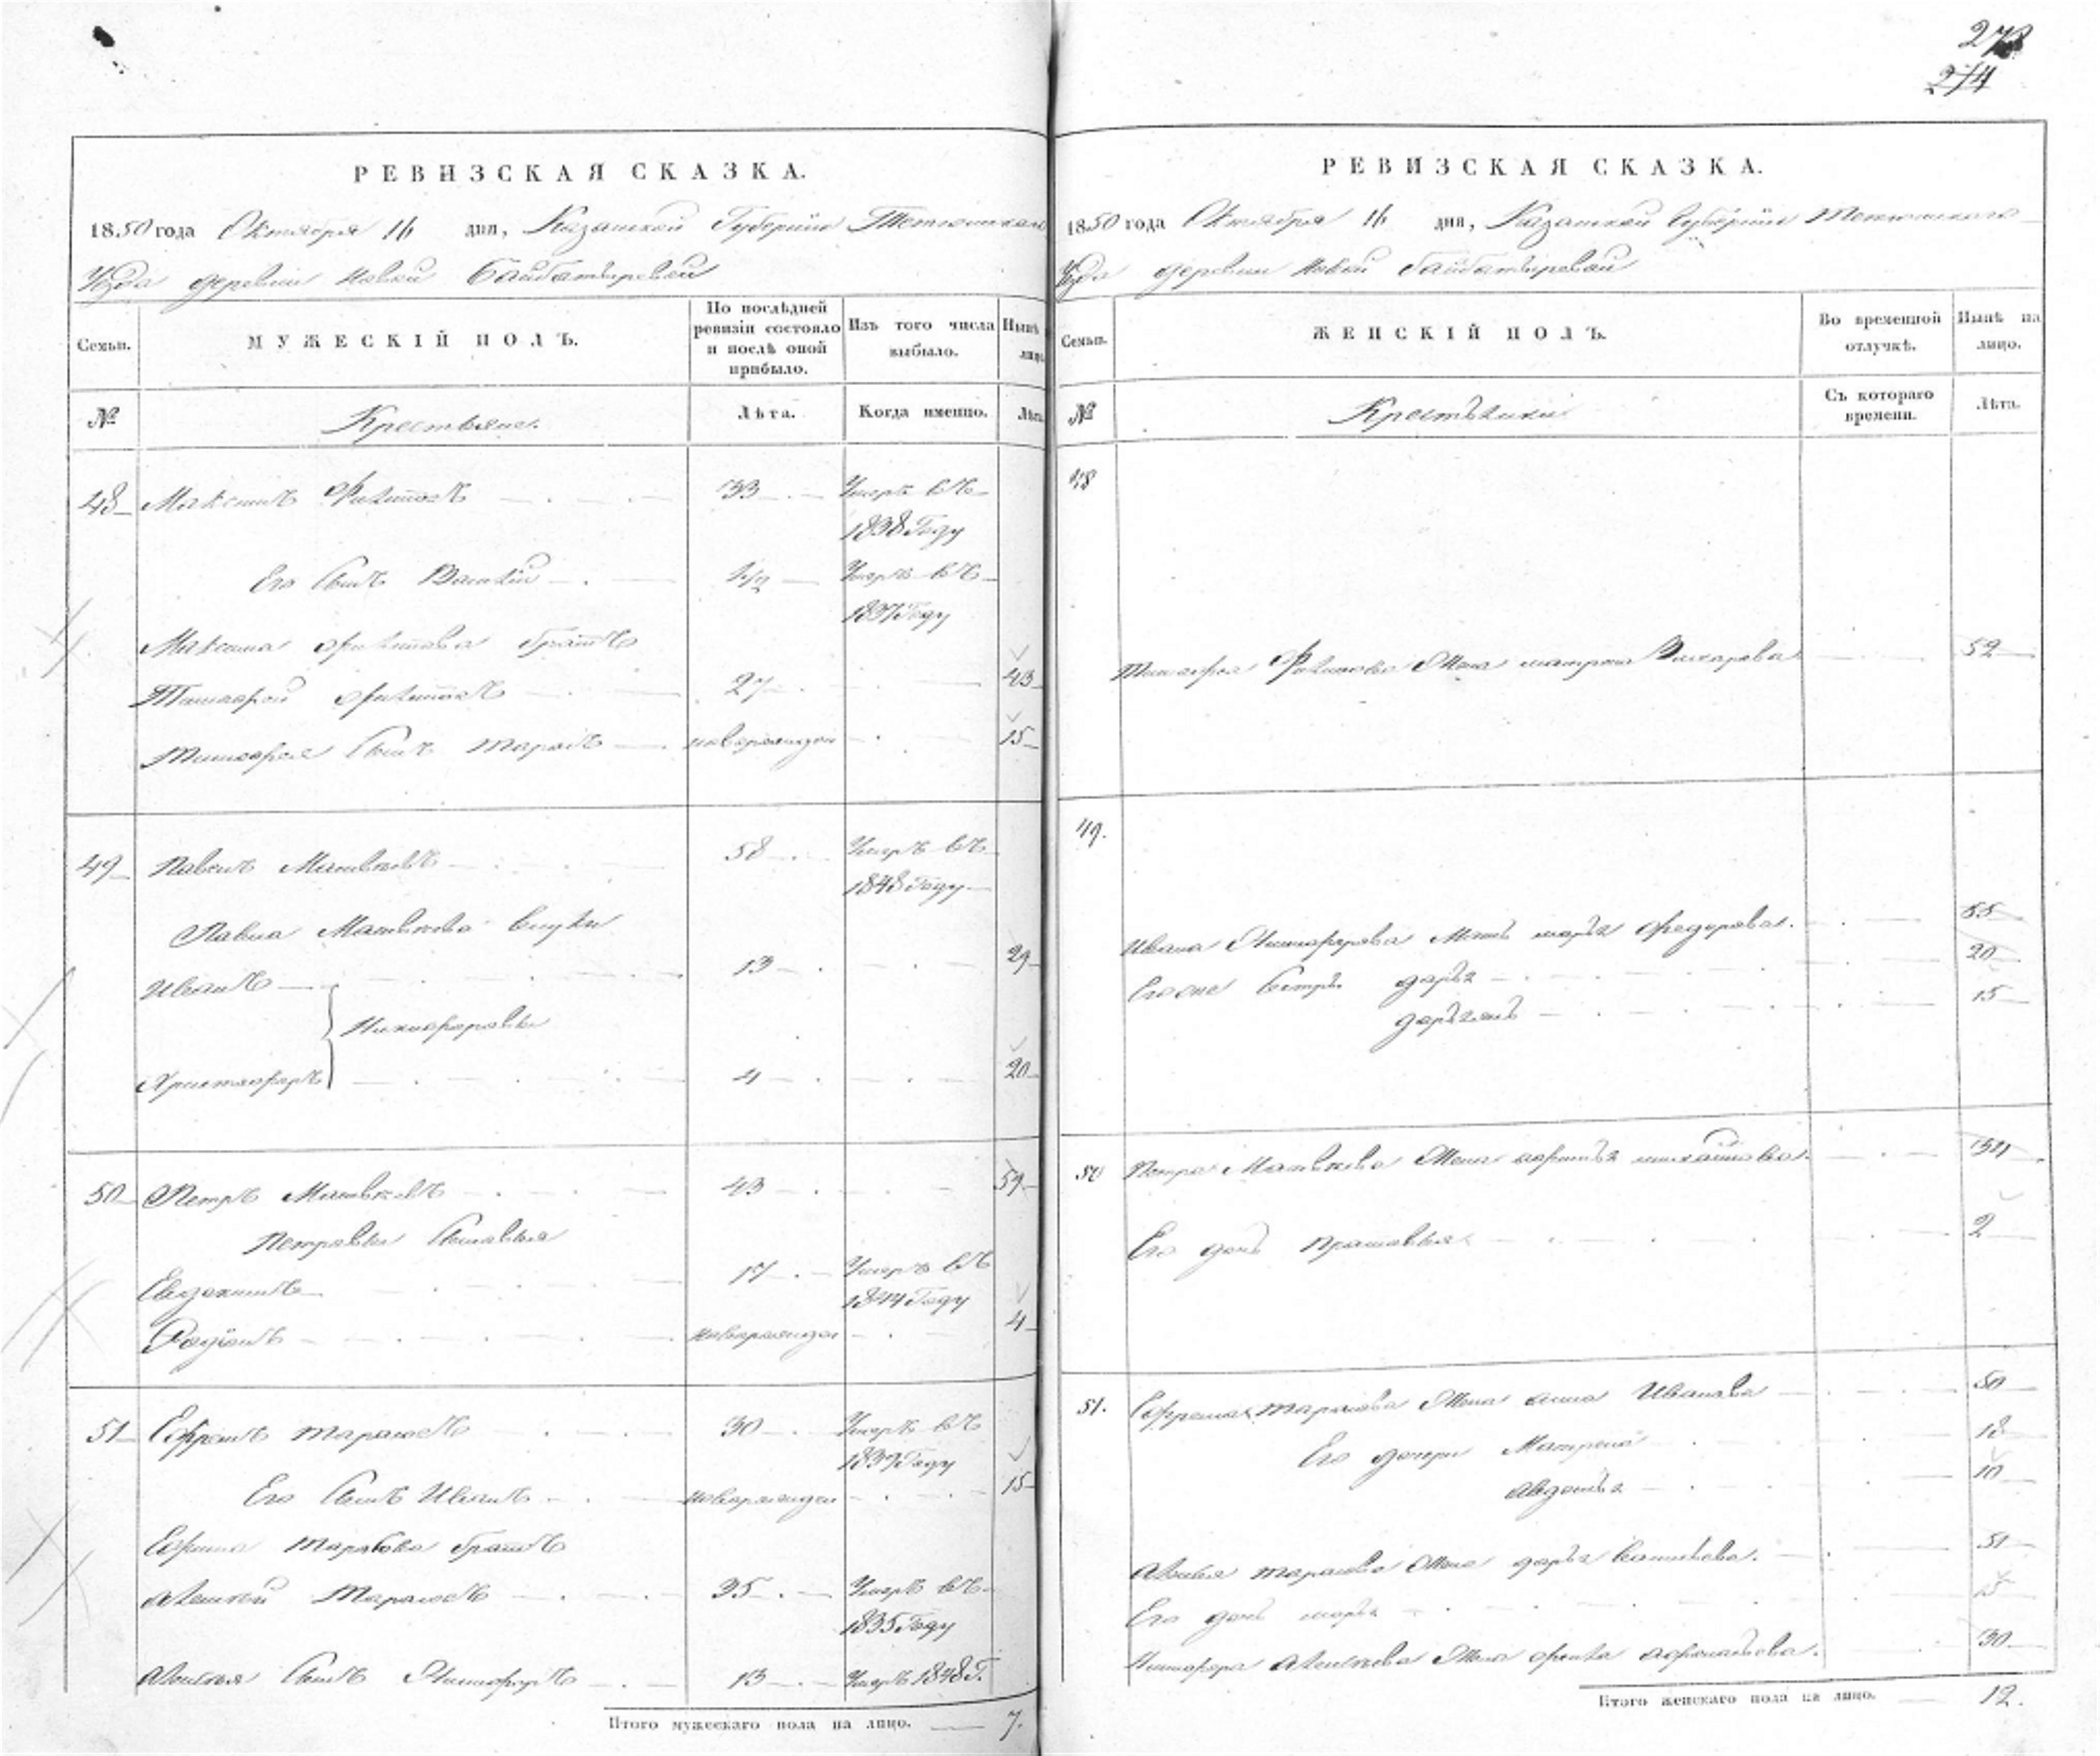 273
274
РЕВИЗСКАЯ СКАЗКА.
1850 года Октября 16 дня, Казанской Губернiи Тетюшскаго
Уѣзда деревни Новой Байбатыревой
Семьи.
МУЖЕСКIЙ ПОЛЪ.
По послѣдней ревизiи состояло и послѣ оной прибыло.
Изъ того числа выбыло.
Нынѣ лицо
№
Крестьяне.
Лѣта.
Когда именно.
Лѣта
48 Максимъ Филиповъ 33 Умеръ въ
1838 Году
Его Сынъ Василiй 1/2 Умеръ въ
1837 Году
Максима Филипова братъ
Тимофей Филиповъ 27 43
Тимофея Сынъ Тарасъ новорожден 15
49 Павелъ Матвѣевъ 58 Умеръ въ
1848 Году
Павла Матвѣева внуки
Иванъ 13 29
Никифоровы
Христофоръ 4 20
50 Петръ Матвѣевъ 43 59
Петровы Сыновья
Евдокимъ 17 Умеръ въ
1844 Году
Родiонъ новорожден 4
51 Ефремъ Тарасовъ 30 Умеръ въ
1837 Году
Его Сынъ Иванъ новорожден 15
Ефрема Тарасова братъ
Алексѣй Тарасовъ 35 Умеръ въ
1835 Году
Алексѣя Сынъ Никифоръ 13 Умеръ 1848 Г.
Итого мужескаго пола на лицо. 7.
РЕВИЗСКАЯ СКАЗКА.
1850 года Октября 16 дня, Казанской Губернiи Тетюшскаго
Уѣзда деревни Новой Байбатыревой
Семьи.
ЖЕНСКIЙ ПОЛЪ.
Во временной отлучкѣ.
Нынѣ на лицо.
№
Крестьянки
Съ котораго времени.
Лѣта.
48
Тимофея Филипова Жена Матрена Захарова 52
49.
Ивана Никифорова Мать Марья Федорова. 55
Его же Сестры Дарья 20
15
50 Петра Матвѣева Жена Афимья Михайлова.
Его дочь Прасковья 2
51. Ефрема Тарасова Жена Анна Иванова 50
Его дочери Матрена 18
Авдотья 10
Алексѣя Тарасова Жена Дарья Васильева. 51
Его дочь Марья 15
Никифора Алексѣева Жена Фекла Афанасьева. 30
Итого женскаго пола на лицо. 12.